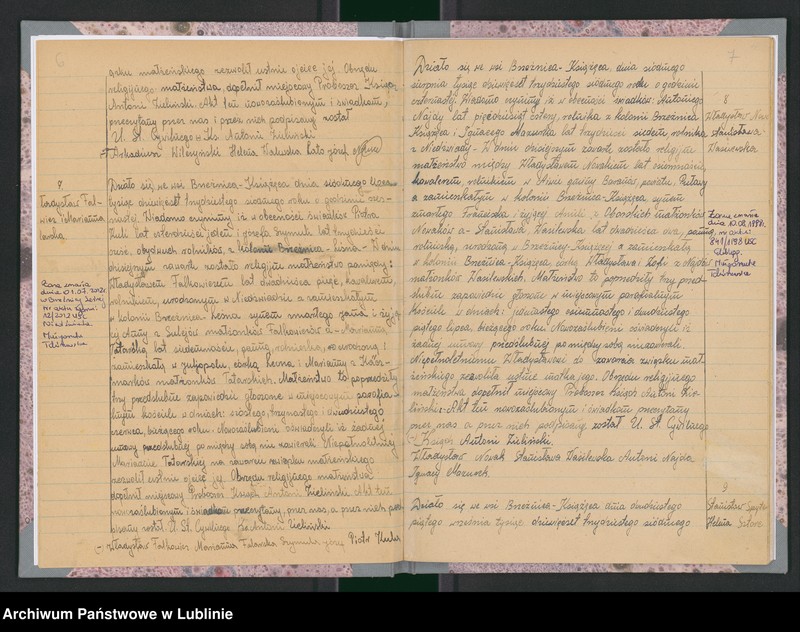 6
goku małżeńskiego zezwolił ustnie ojciec jej. Obrzędu
religijnego małżeństwa dopełnił miejscowy Proboszcz Ksiądz
Antoni Zieliński. Akt ten nowozaślubionym i świadkom,
przeczytany przez nas i przez nich podpisany został
U. S. Cywilnego Ks. Antoni Zieliński
Arkadiusz Wilczyński Helena Walewska
7.
Władysław Fał-
Marianna
Działo się we wsi Brzeźnica-Książęca dnia siódmego lipca
tysiąc dziewięćset trzydziestego siódmego roku o godzinie
Wiadomo czynimy iż w obecności świadków Piotra
lat czterdzieści jeden i Józefa Szymula lat
obydwóch rolników, z kolonii Brzeźnica - Leśna - W dniu
dzisiejszym zawarte zostało religijne małżeństwo pomiędzy:
Władysławem Fałkowiczem lat dwadzieścia pięć, kawalerem
rolnikiem, urodzonym w Niedźwiadzie a zamieszkałym
w kolonii Brzeźnica Leśna synem zmarłego Jana i żyją-
cej Anny z małżonków Fałkowiczów a Marianną
lat siedemnaście, panną, rolniczką, urodzoną i
zamieszkałą w córką Leona i Marianny z
małżonków Małżeństwo to poprzedziły
trzy przedślubne zapowiedzi głoszone w miejscowym parafial-
nym kościele w dniach: szóstego, trzynastego i dwudziestego
czerwca, bieżącego roku. Nowozaślubieni oświadczyli iż żadnej
umowy przedślubnej pomiędzy sobą nie zawierali Niepełnoletniej
Mariannie na zawarcie związku małżeńskiego
zezwolił ustnie ojciec jej. Obrzędu religijnego małżeństwa
dopełnił miejscowy Proboszcz Ksiądz Antoni Zieliński. Akt ten
nowozaślubionym i świadkom przeczytany, przez nas, a przez nich pod-
pisany został U. St. Cywilnego Ks Antoni Zieliński
Władysław Fałkowicz Marianna Szymula Józef Piotr
Zona zmarła
dnia 01.07.2012r.
Nr aktu zgonu:
12/2012 USC
Niedźwiada
Małgorzata
7
Działo się we wsi Brzeźnica-Książęca, dnia siódmego
sierpnia tysiąc dziewięćset trzydziestego siódmego roku o godzinie
Wiadomo czynimy iż w obecności świadków: Antoniego
Najdy lat pięćdziesiąt cztery, rolnika z kolonii Brzeźnica
Książęca i Ignacego Mazurka lat trzydzieści siedem, rolnika
z Niedźwiady - W dniu dzisiejszym zawarte zostało religijne
małżeństwo między Władysławem Nowakiem lat osiemnaście,
kawalerem, rolnikiem w gminy Baranów, powiatu Puławy
a zamieszkałym w kolonii Brzeźnica-Książęca synem
zmarłego Franciszka i żyjącej Anieli z małżonków
Nowaków a- Stanisławą Wasilewską lat dwadzieścia dwa, panną,
rolniczką, urodzoną w Brzeźnicy-Książęcej a zamieszkałą
w kolonii Brzeźnica-Książęca córką Władysława i Zofii z Najdów
małżonków Wasilewskich. Małżeństwo to poprzedziły trzy przed-
ślubne zapowiedzi głoszone w miejscowym parafialnym
kościele w dniach: jedenastego osiemnastego i dwudziestego
piątego lipca, bieżącego roku. Nowozaślubieni oświadczyli iż
żadnej umowy przedślubnej pomiędzy sobą nie zawierali
Niepełnoletniemu Władysławowi do zawarcia związku mał-
żeńskiego zezwoliła ustnie matka jego. Obrzędu religijnego
małżeństwa dopełnił miejscowy Proboszcz Ksiądz Antoni Zie-
liński - Akt ten nowozaślubionym i świadkom przeczytany
przez nas a przez nich podpisany został U. St. Cywilnego
- Ksiądz Antoni Zieliński.
Władysław Nowak Stanisława Wasilewska Antoni Najda
Ignacy Mazurek.
8
Władysław Nowak
Stanisława
Wasilewska
Żona zmarła
dnia 10.08.1998r.
nr aktu
841/1998 USC
Małgorzata
9
Stanisław
Helena
Działo się we wsi Brzeźnica-Książęca dnia dwudziestego
piątego września tysiąc dziewięćset trzydziestego siódmego
Archiwum Państwowe w Lublinie